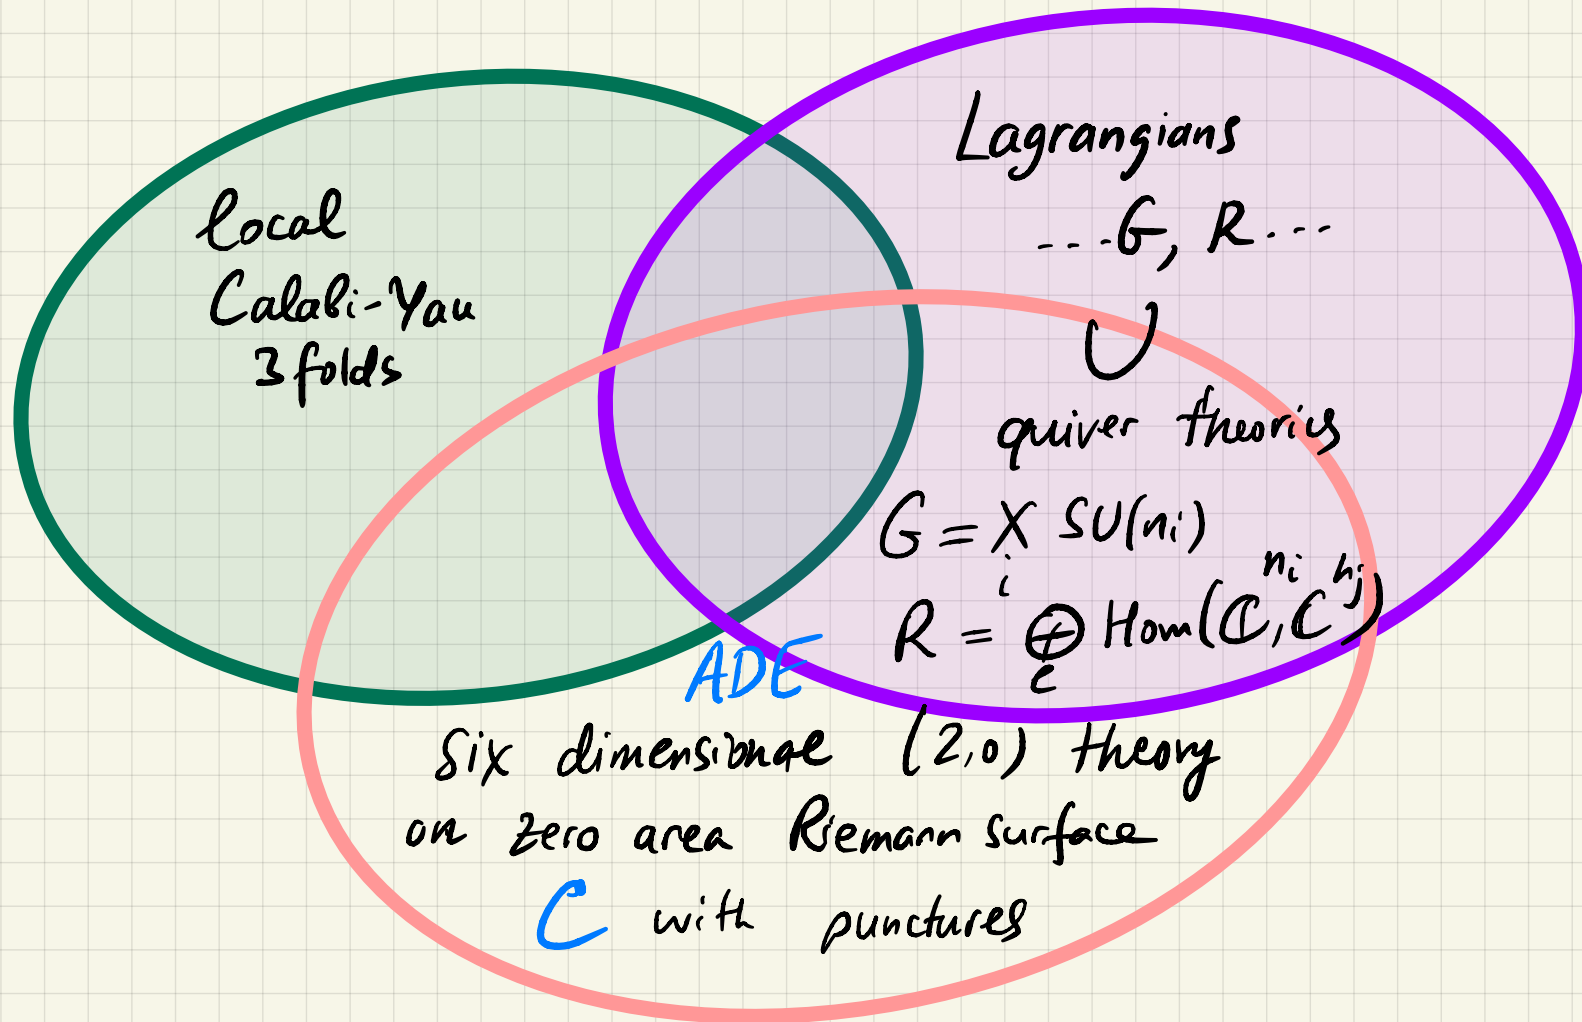 local
Calabi-Yau
3 folds
Lagrangians
----G, R----
∪
quiver theories
G = ×_i SU(n_i)
R = ⊕_e Hom(ℂ^{n_i}, ℂ^{n_j})
ADE
Six dimensional (2,0) theory
on zero area Riemann surface
C with punctures